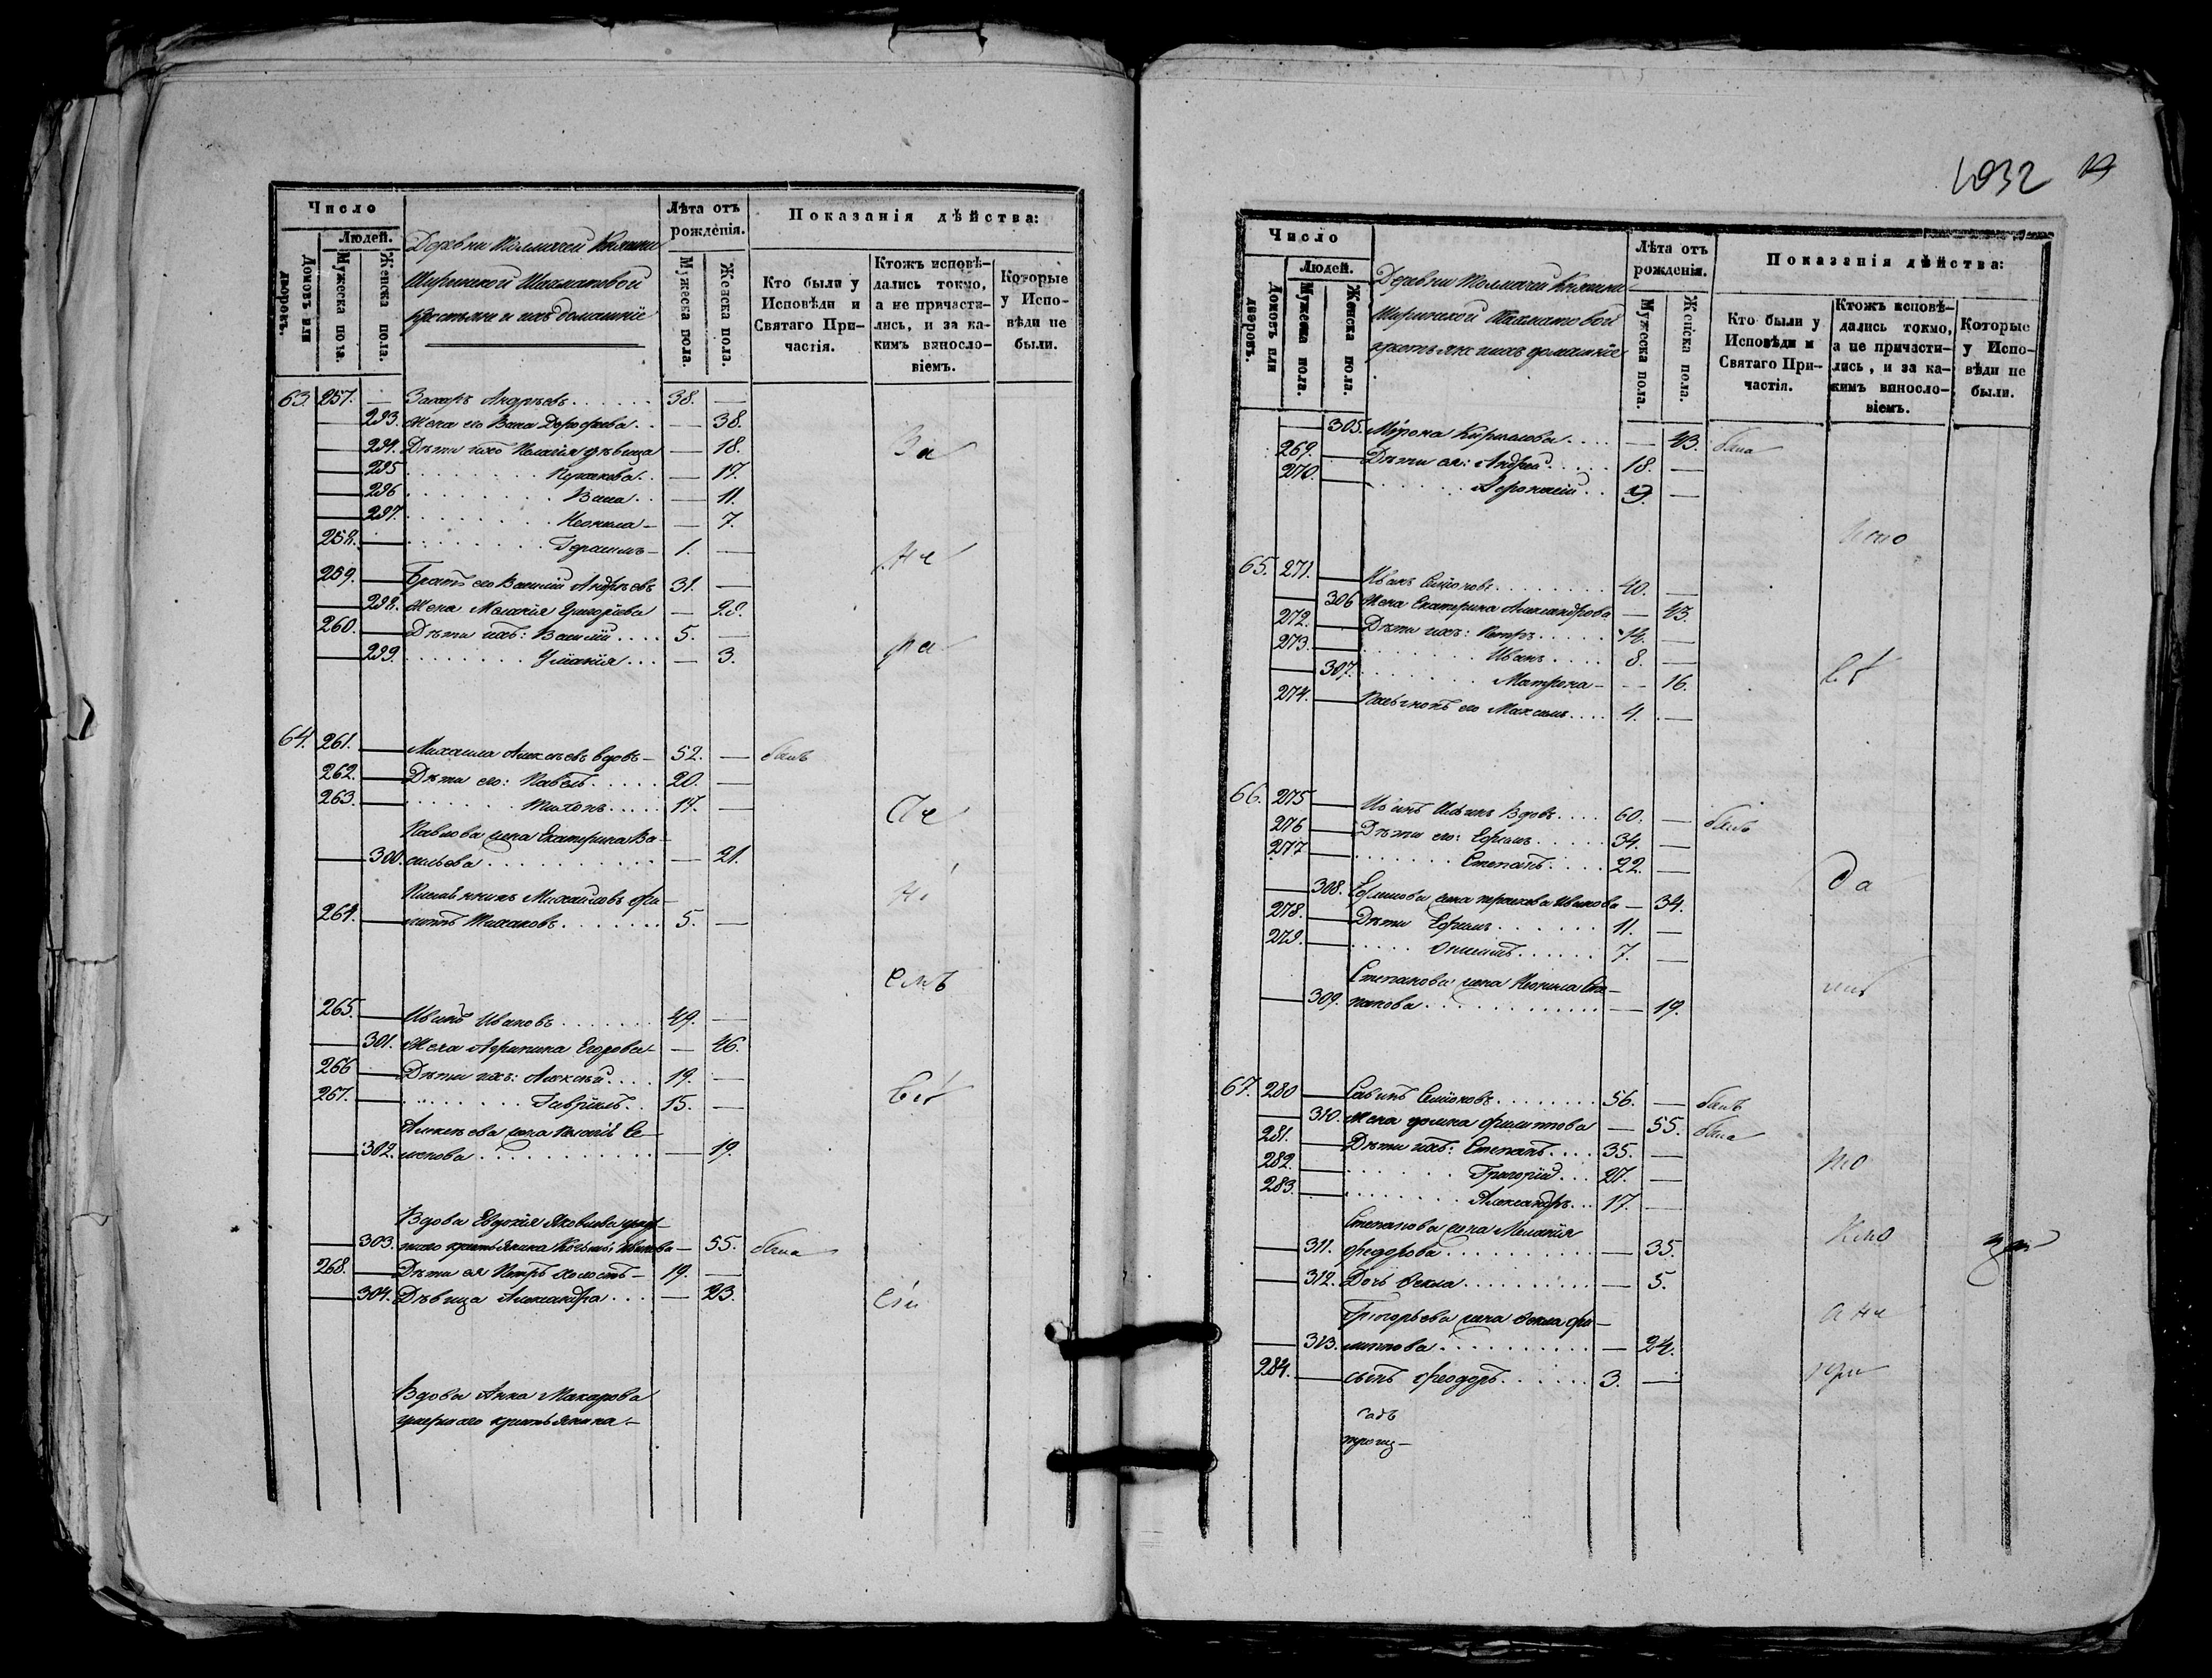 Число
Людей.
Домовъ или дворовъ.
Мужеска пола.
Женска пола.
Деревни Толмачей Княжны
Ширинской Шихматовой
крестьяне и ихъ домашніе
Лѣта отъ рожденія.
Мужеска пола.
Женска пола.
Показанія дѣйства:
Кто были у Исповѣди и Святаго Причастія.
Ктожъ исповѣдались токмо, а не причастились, и за какимъ винословіемъ.
Которые у Исповѣди не были.
63. 257. — Захаръ Андрѣевъ 38. —
— 293. Жена его Васса Дорофеева — 38.
— 294. Дѣти ихъ Пелагія дѣвица — 18.
— 295 — 17.
— 296 Васса — 11.
— 297. Неонила — 7.
258. — Герасимъ 1. —
259. — Братъ его Василій Андрѣевъ 31. —
— 298. Жена Меланія Григорьева — 28.
260. — Дѣти ихъ: Василій 5. —
— 299. Уліанія — 3.
За
64. 261. — Михаила Алексѣевъ вдовъ 52. — былъ
262. — Дѣти его: Павелъ 20. —
263. — Тихонъ 17. —
Павлова жена Екатерина Ва-
— 300. сильева — 21.
Племѣнникъ Михайловъ Фи-
264. — липпъ 5. —
265. — Иванъ Ивановъ 49. —
— 301. Жена Агрипина Егорова — 46.
266 — Дѣти ихъ: Алексѣй 19. —
267. — Гавріилъ 15. —
Алексѣева жена Се-
— 302. менова — 19.
Вдова Евдокія Яковлева умер-
— 303. шаго крестьянина — 55. была
268. — Дѣти ея Петръ холостъ 19. —
— 304. Дѣвица Александра — 23.
Вдова Анна Макарова
умершаго крестьянина
1032
Число
Людей.
Домовъ или дворовъ.
Мужеска пола.
Женска пола.
Деревни Толмачей Княжны
Ширинской Шихматовой
крестьяне и ихъ домашніе
Лѣта отъ рожденія.
Мужеска пола.
Женска пола.
Показанія дѣйства:
Кто были у Исповѣди и Святаго Причастія.
Ктожъ исповѣдались токмо, а не причастились, и за какимъ винословіемъ.
Которые у Исповѣди не были.
— 305. Кирилова — 43. была
269. — Дѣти ея: Андрей 18. —
270. — 9. —
65. 271. — Иванъ Семіоновъ 40. —
— 306 Жена Екатерина Александрова — 43.
272. — Дѣти ихъ: Петръ 14. —
273. — Иванъ 8. —
— 307. Матрона — 16.
274. — его Максимъ 4. —
66. 275 — Вдовъ 60. — былъ
276 — Дѣти его: Ефимъ 34. —
277 — Степанъ 22. —
— 308. Ефимова жена Иванова — 34.
278. — Дѣти Ефимъ 11. —
279. — Онисимъ 7. —
Степанова жена Неонила Сте-
— 309. панова — 19.
да
67. 280 — Савинъ Семіоновъ 56. — былъ
— 310. Жена Домна Филиппова — 55. была
281. — Дѣти ихъ: Степанъ 35. —
282. — Григорій 27. —
283. — Александръ 17. —
Степанова жена Меланія
— 311. Федорова — 35.
— 312. Дочь Фекла — 5.
Григорьева жена Фекла Фи-
— 313. липпова — 24.
284. — сынъ Феодоръ 3. —